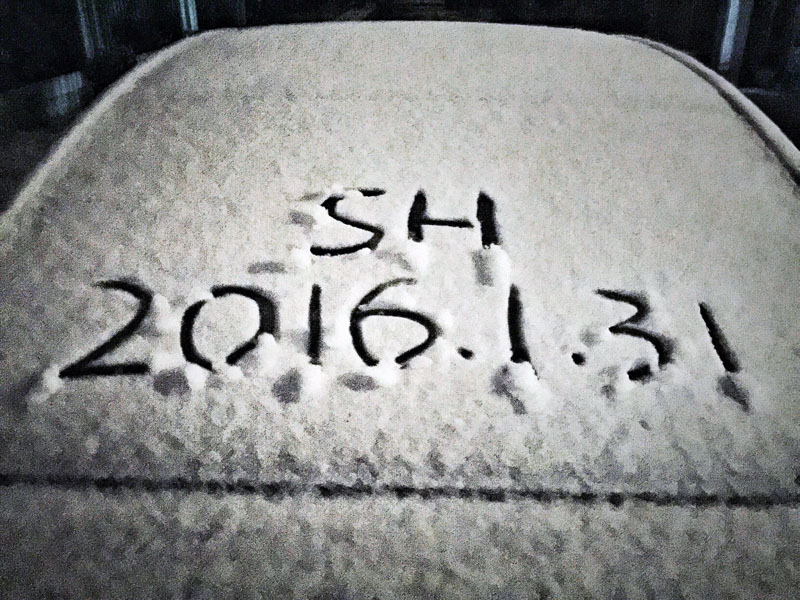 SH
2016.1.31